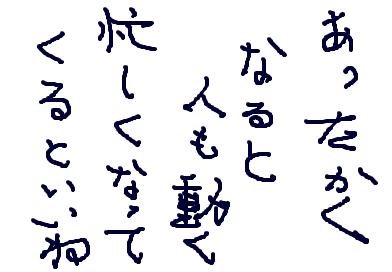 あったかく
なると
人も動く
忙しくなって
くるといいね